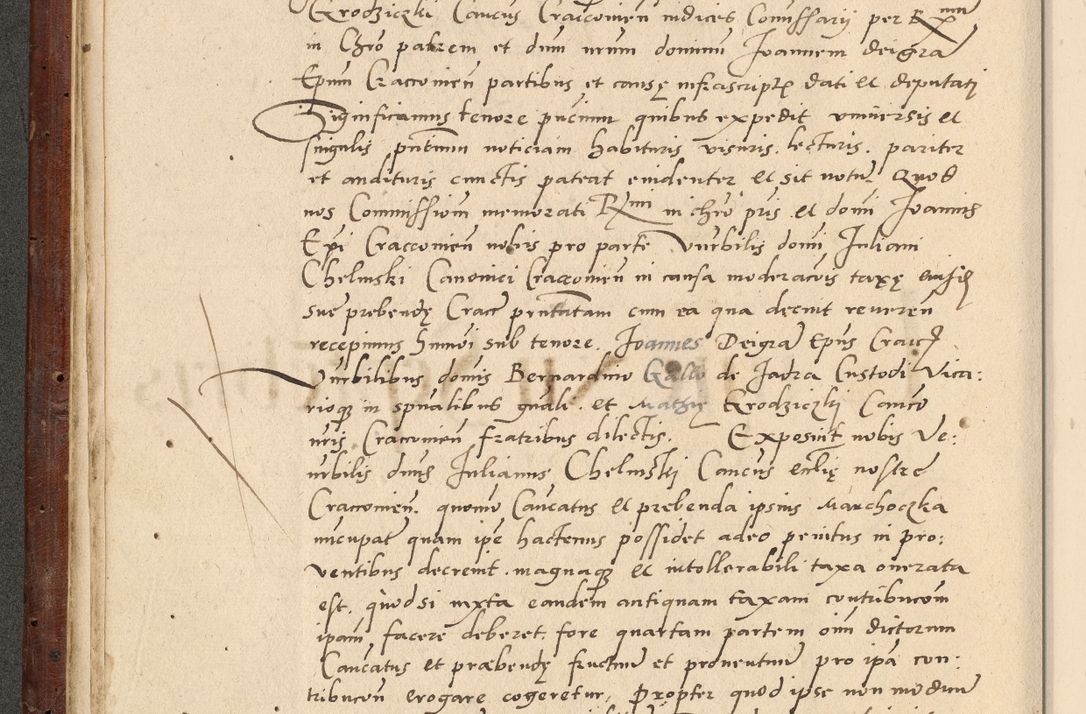 Grodziczki Cancus Cracconien iudices Comissarij per Rmum
in Chro patrem et dum nrum dominum Joannem dei gra
Epum Cracconien partibus et causę infrascriptę dati et deputati
Significamus tenore pntium quibus expedit universis et
singulis pntium noticiam habituris visuris lecturis . pariter
et audituris cunctis pateat evidenter et sit notu Quod
nos Comissiom memorati Rmi in chro pris et domi Joannis
Epi Cracconien nobis pro parte Vnrbilis domi Juliani
Chelmski Canonici Cracconien in causa moderacois taxę eiusd
suę prebendę Cracc pntatam cum ea qua decuit reveren
recepimus huiuoi sub tenore . Joannes Dei gra Epus Cracc
Vnrbilibus domis Bernardino Gallo de Jadra Custodi Vica:
rioq in spualibus gnali . et Mathię Grodziczki Canco
nris Cracconien fratribus dilectis . Exposuit nobis Ve:
nrbilis dnus Julianus Chelmski Cancus ecclię nostrę
Cracconien . quomo Cancatus et prebenda ipsius Marchoczka
nuncupat quam ipe hactenus possidet adeo penitus in pro:
ventibus decreuit . magnaq et intollerabili taxa onerata
est . quod si iuxta eandem antiquam taxam contribucom
ipam facere deberet . fore quartam partem oim dictorum
Cancatus et præbendę fructuum et proventuum pro ipa con:
tribucon erogare cogeretur . Propter quod ipse non modicum